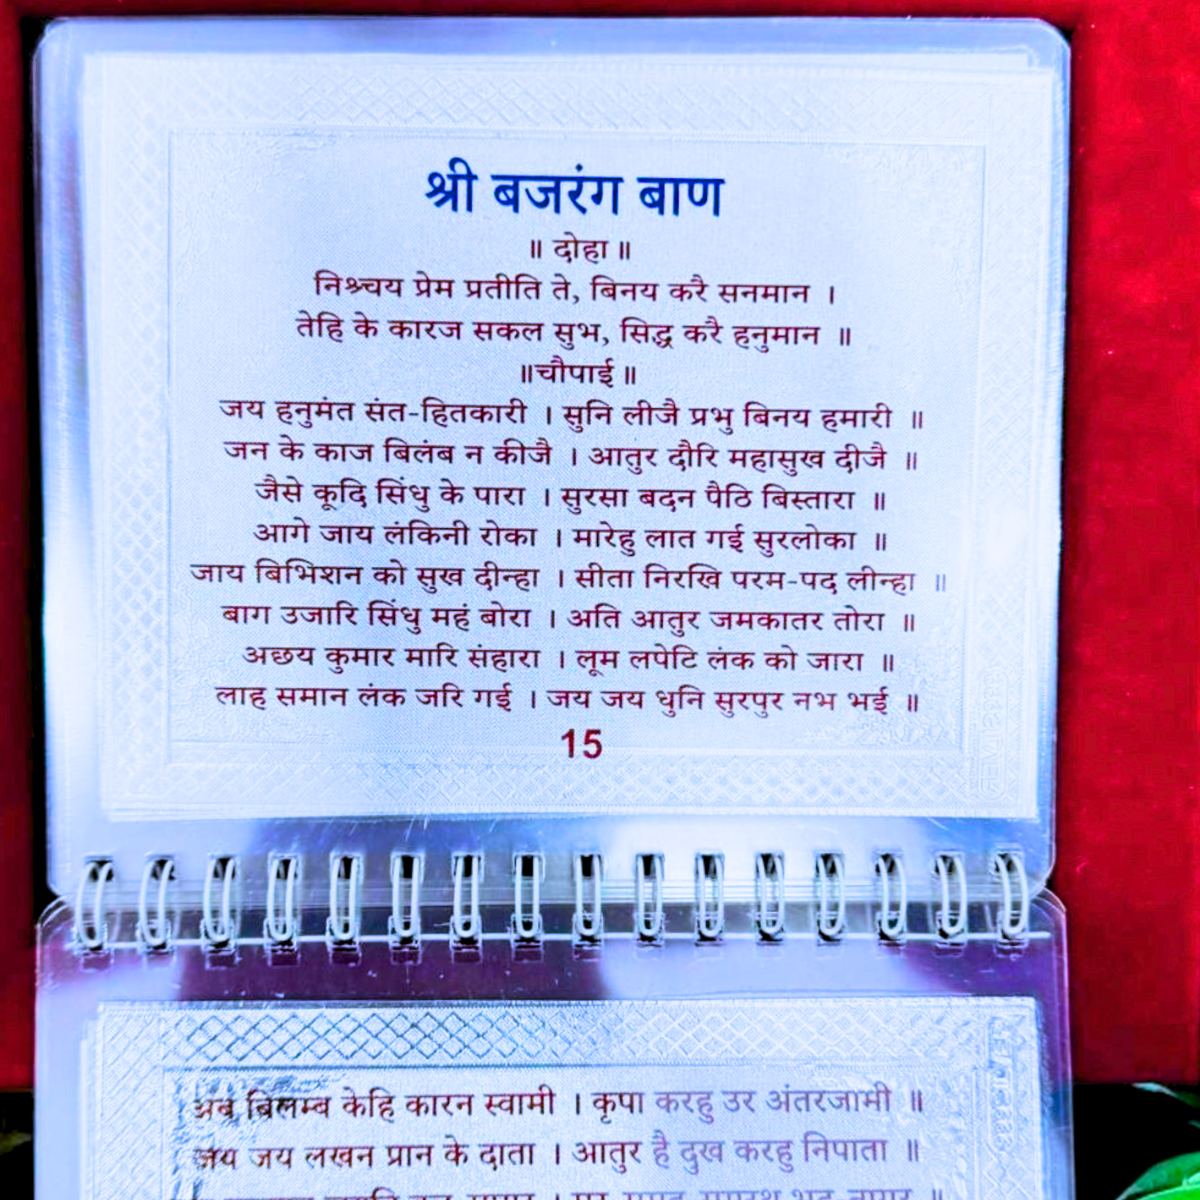 श्री बजरंग बाण
॥ दोहा ॥
निश्चय प्रेम प्रतीति ते, बिनय करै सनमान ।
तेहि के कारज सकल सुभ, सिद्ध करै हनुमान ॥
॥चौपाई ॥
जय हनुमंत संत-हितकारी । सुनि लीजै प्रभु बिनय हमारी ॥
जन के काज बिलंब न कीजै । आतुर दौरि महासुख दीजै ॥
जैसे कूदि सिंधु के पारा । सुरसा बदन पैठि बिस्तारा ॥
आगे जाय लंकिनी रोका । मारेहु लात गई सुरलोका ॥
जाय बिभिशन को सुख दीन्हा । सीता निरखि परम-पद लीन्हा ॥
बाग उजारि सिंधु महं बोरा । अति आतुर जमकातर तोरा ॥
अछय कुमार मारि संहारा । लूम लपेटि लंक को जारा ॥
लाह समान लंक जरि गई । जय जय धुनि सुरपुर नभ भई ॥
15
अब बिलम्ब केहि कारन स्वामी । कृपा करहु उर अंतरजामी ॥
जय जय लखन प्रान के दाता । आतुर है दुख करहु निपाता ॥